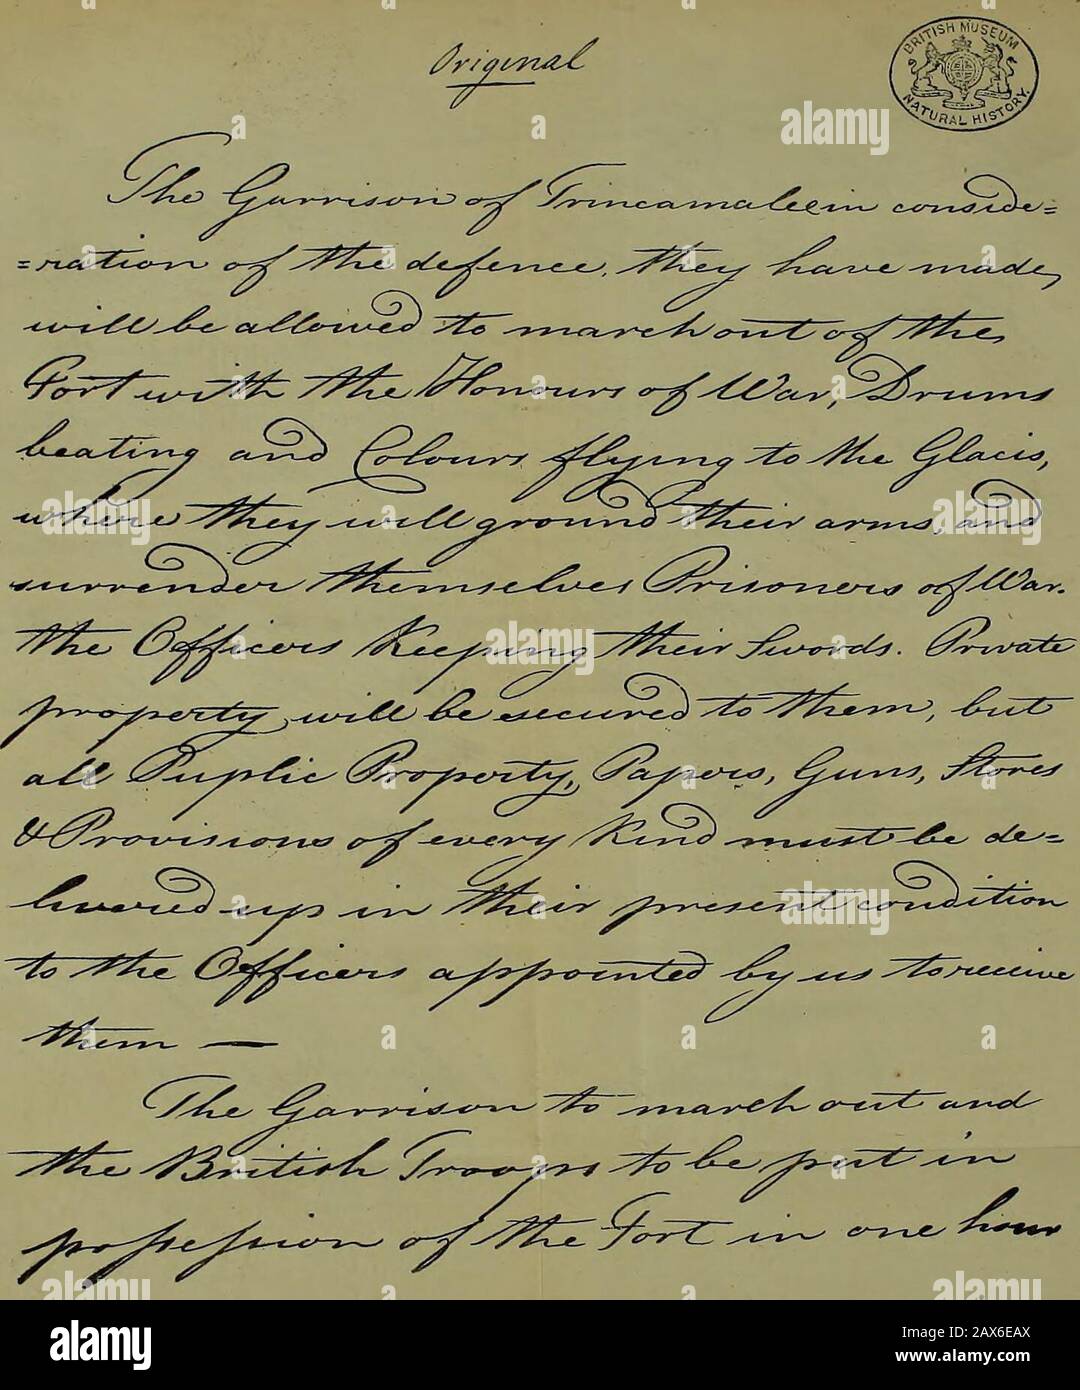 Original
BRITISH MUSEUM
NATURAL HISTORY.
The Garrison of Trincamalee in conside=
=ration of the defence, they have made,
will be allowed to march out of the
Fort with the Honours of War, Drums
beating and Colours flying to the Glacis,
where they will ground their arms, and
surrender themselves Prisoners of War.
the Officers Keeping their Swords. Private
property will be secured to them, but
all Puplic Property, Papers, Guns, Stores
& Provisions of every Kind must be de=
livered up in their present condition
to the Officers appointed by us to receive
them —
The Garrison to march out and
the British Troops to be put in
possession of the Fort in one hour
alamy
Image ID: 2AX6EAX
www.alamy.com